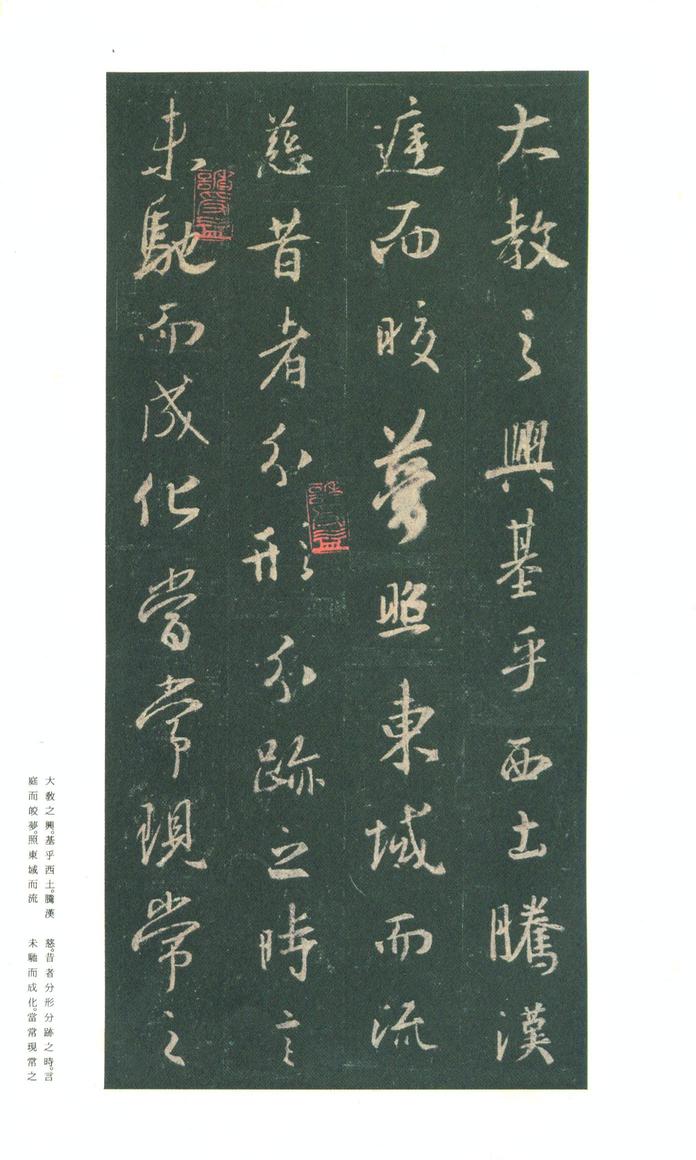 大教之興基乎西土騰漢
遳而晈夢照東域而流
慈昔者分形分跡之時言
未馳而成化當常現常之
大教之興。基乎西土。騰漢
庭而皎夢。照東域而流
慈。昔者分形分跡之時。言
未馳而成化。當常現常之